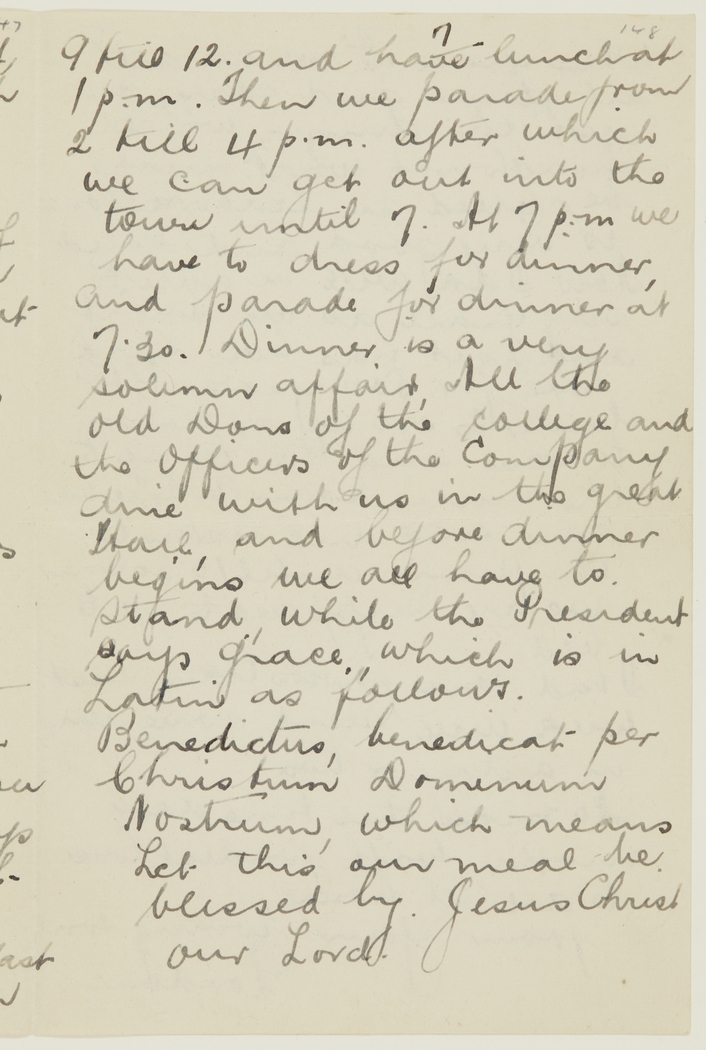 148
9 till 12. and have lunch at
1 p.m. Then we parade from
2 till 4 p.m. after which
we can get out into the
town until 7. At 7 p.m we
have to dress for dinner,
and parade for dinner at
7.30. Dinner is a very
solemn affair, All the
old Dons of the college and
the Officers of the Company
dine with us in the great
Hall, and before dinner
begins we all have to.
stand, while the President
says grace, which is in
Latin as follows.
Benedictus, benedicat per
Christum Domenum
Nostrum, which means
Let this our meal be.
blessed by. Jesus Christ
our Lord.